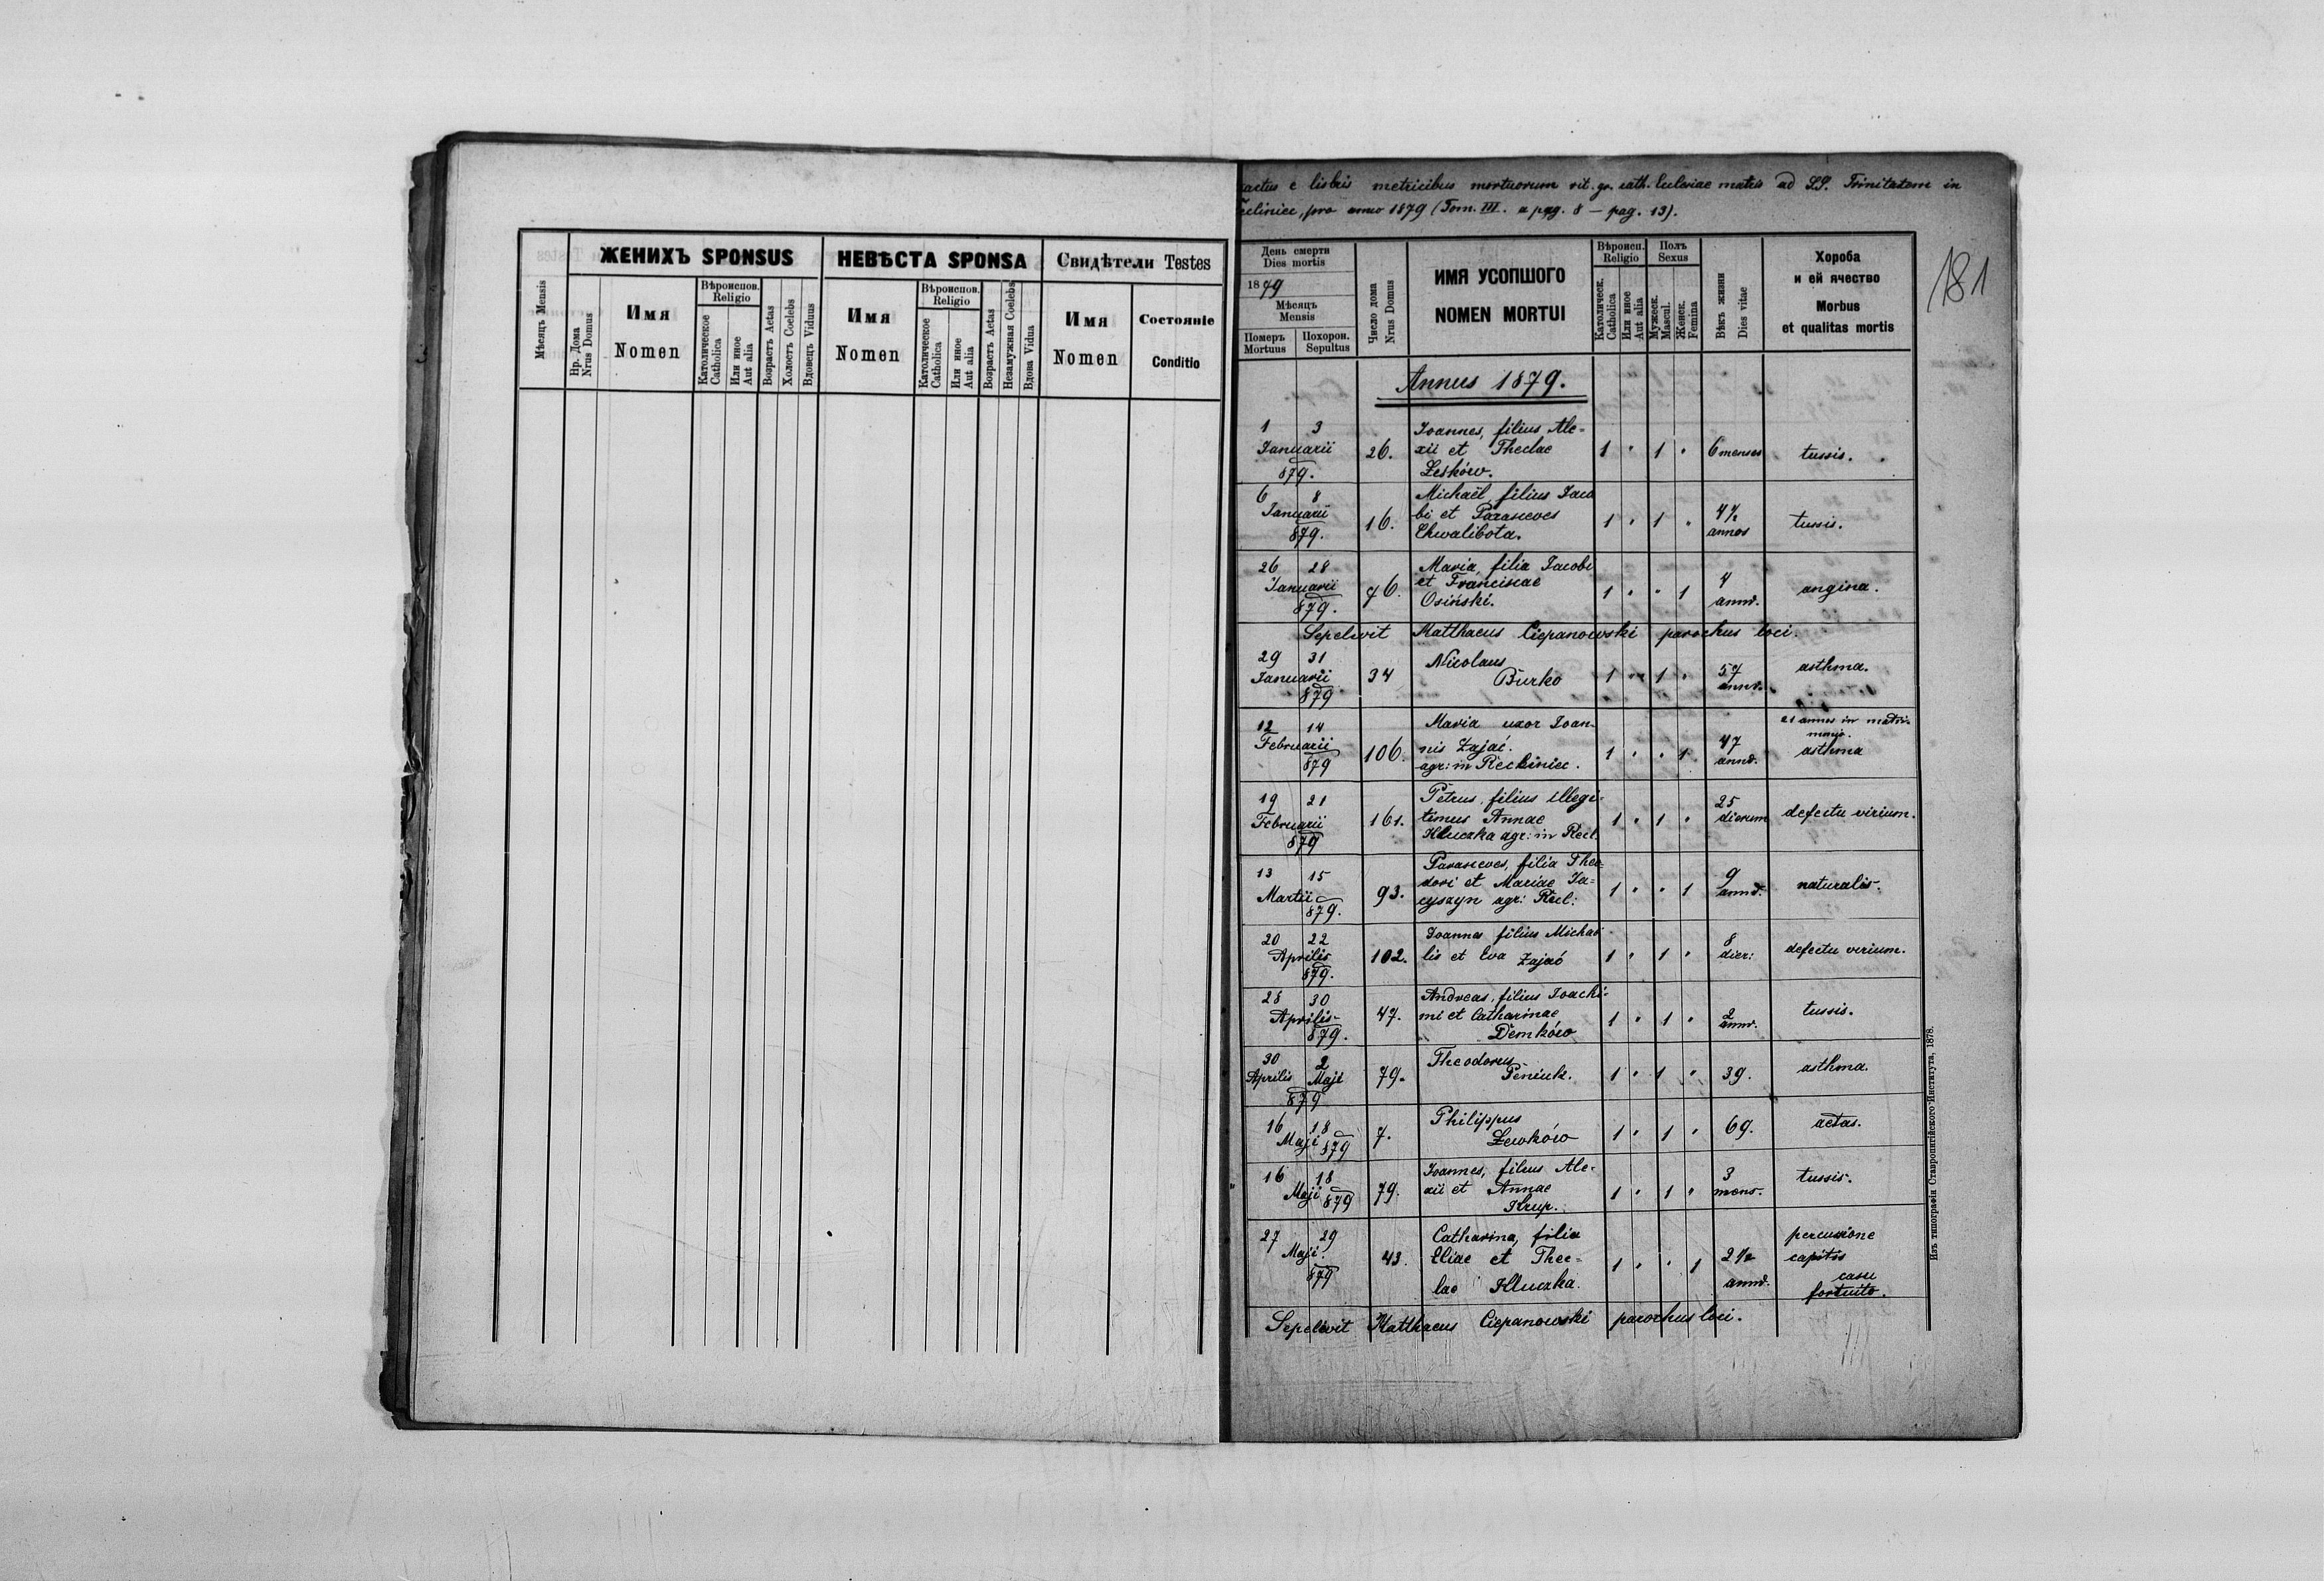 ЖЕНИХЪ SPONSUS
НЕВѢСТА SPONSA
Свидѣтели Testes
Мѣсяцъ Mensis
Нр. Дома
Nrus Domus
Имя
Nomen
Вѣроиспов.
Religio
Католическое
Catholica
Или иное
Aut alia
Возрастъ Aetas
Холостъ Coelebs
Вдовецъ Viduus
Имя
Nomen
Вѣроиспов.
Religio
Католическое
Catholica
Или иное
Aut alia
Возрастъ Aetas
Незамужная Coelebs
Вдова Vidua
Имя
Nomen
Состоянiе
Conditio
actus e libris metricibus mortuorum rit. gr. cath. matris ad SS. Trinitatem in
cliniec, pro anno 1879 (Tom. III. a pag. 8 — pag. 13).
181
День смерти
Dies mortis
1879
Мѣсяцъ
Mensis
Померъ
Mortuus
Похорон.
Sepultus
Число дома
Nrus Domus
ИМЯ УСОПШОГО
NOMEN MORTUI
Вѣроисп.
Religio
Католическ.
Catholica
Или иное
Aut alia
Полъ
Sexus
Мужеск.
Mascul.
Женск.
Femina
Вѣкъ жизни
Dies vitae
Хороба
и ей ячество
Morbus
et qualitas mortis
Annus 1879.
1 3 Joannes, filius Ale-
Januarii 26. xii et Theclae 1 " 1 " 6 menses tussis.
879. Leśków.
6 8 Michaël, filius Jaco
Januarii 16. bi et Parasceves 1 " 1 " 4½ tussis.
879. Chwalibota. annos
26 28 Maria, filia Jacobi
Januarii 76. et Franciscae 1 " " 1 4 angina.
879. Osiński. annor.
Sepelivit Matthaeus Ciepanowski parochus loci.
29 31 Nicolaus
Januarii 34 Burko 1 " 1 " 57 asthma.
879 annor.
12 14 Maria uxor Joan- 21 annos in matri-
Februarii 106. nis Zając. 1 " " 1 47 monio.
879 agr: in Recliniec. annor. asthma
19 21 Petrus, filius illegi- 25
Februarii 161. timus Annae 1 " 1 " dierum defectu virium.
879 Kluczka agr: in Recl.
13 15 Parasceves, filia Theo-
Martii 93. dori et Mariae Ja- 1 " " 1 9 naturalis.
879. cyszyn agr: Recl: annor.
20 22 Joannes filius Michaë-
Aprilis 102. lis et Eva Zając 1 " 1 " 8 defectu virium.
879. dier:
28 30 Andreas, filius Joachi-
Aprilis 47. mi et Catharinae 1 " 1 " 2 tussis.
879. Demków annor.
30 2 Theodorus
Aprilis Maji 79. Peniuk. 1 " 1 " 39. asthma.
879
16 18 Philippus
Maji 879 7. Lewków 1 " 1 " 69. aetas.
16 18 Joannes, filius Ale- 3
Maji 879 79. xii et Annae 1 " 1 " mens. tussis.
Krup.
27 29 Catharina, filia percussione
Maji. 43. Eliae et Thec- 1 " " 1 2½ capitis
879 lae Kluczka. annor. casu
fortuito.
Sepelivit Matthaeus Ciepanowski parochus loci.
Изъ типографiи Ставропигiйского Института, 1878.